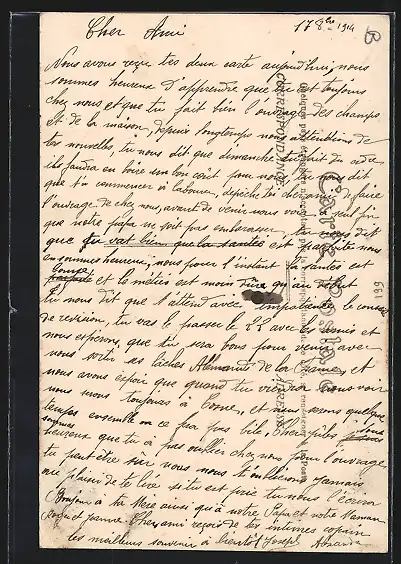 17 8bre 1914
Cher Ami
Nous avons reçu tes deux carte aujourd'hui, nous
sommes heureux d'apprendre que tu est toujours
chez nous et que tu fait bien l'ouvrage des champs
et de la maison, depuis longtemps nous attendions de
tes nouvelles, tu nous dit que dimanche
il faudra en boire un bon coup pour nous, tu nous dit
que tu commences à labourer, dépêche toi de faire
l'ouvrage de chez nous, avant de venir nous voir
que notre papa ne soit pas embarasser, tu nous dit
que tu vat bien que la santée est parfaite nous
en sommes heureux, nous pour l'instant la santés est
bonne et le métier est moin dure qu'au début
tu nous dit que t'attend avec impatience le conseil
de revision, tu vas le passer le 22 avec les amis et
nous espérons, que tu sera bons pour venir avec
nous sortir ses lâches Allemands de la France, et
nous avons espoir que quand tu viendra nous voir
nous nous toujours à Cosne, et nous serons quelque
temps ensemble on ce fra pas bile, Cher fils nous
sommes heureux que tu a pas oublier chez nous pour l'ouvrage
tu peut être sûr nous nous t'oublieron jamais
au plaisir de te lire si tu est prié tu nous l'écrira
Bonjour à ta Mère ainsi qu'à notre Papa et notre Maman
Cher ami reçois de tes intimes copain
les meilleurs souvenir à bientôt Joseph
CORRESPONDANCE
Carte Postale
ADRESSE